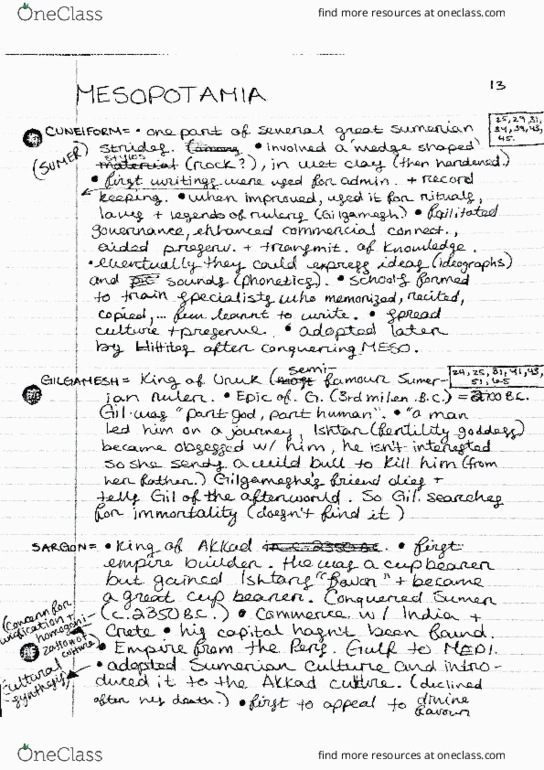 OneClass
find more resources at oneclass.com
13
MESOPOTAMIA
25, 29, 31,
34, 39, 43,
45.
CUNEIFORM = • one part of several great Sumerian
(SUMER) strides. • involved a wedge shaped
stylus (rock?), in wet clay (then hardened.)
• first writings were used for admin. + record
keeping. • when improved, used it for rituals,
laws + legends of rulers (Gilgamesh) • failitated
governance, enhanced commercial connect.,
aided preserv. + transmit. of knowledge.
• eventually they could express ideas (ideographs)
and sounds (phonetics). • schools formed
to train specialists who memorized, recited,
copied, ... few learnt to write. • spread
culture + preserve. • adopted later
by Hittites after conquering MESO.
24, 25, 31, 41, 43,
51, 65
GILGAMESH = King of Uruk (semi-famous Sumer-
ian ruler. • Epic of G. (3rd milen. B.C.) = 2100 B.C.
Gil was "part god, part human". • "a man
led him on a journey, Ishtar (fertility goddess)
became obsessed w/ him, he isn't interested
so she sends a wild bull to kill him (from
her father.) Gilgameshe's friend dies +
tells Gil of the afterworld. So Gil searches
for immortality (doesn't find it)
SARGON = • King of Akkad in c. 2350 BC. • first
empire builder. He was a cup bearer
but gained Ishtars "favor" + became
a great cup bearer. Conquered Sumer
(c. 2350 B.C.) • Commerce w/ India +
Crete • his capital hasn't been found.
• Empire from the Pers. Gulf to MEDI.
• adopted Sumerian culture and intro-
duced it to the Akkad culture. (declined
after his death.) • first to appeal to divine
favour
(Concern for
unification +
homogeni-
zation of
culture
Cultural
synthesis
OneClass
find more resources at oneclass.com